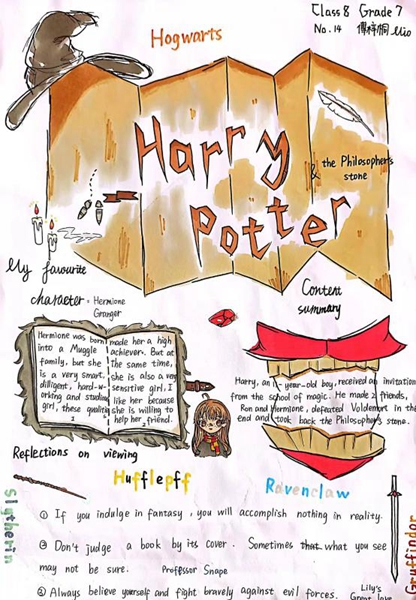 Hogwarts
Class 8 Grade 7
No. 14 傅梓桐 Mio
Harry
Potter
& the Philosopher's
stone
My favourite
character = Hermione
Granger
Content
summary
Hermione was born
into a Muggle
family, but she
is a very smart,
diligent, hard-w
orking and studious
girl, these qualities
made her a high
achiever. But at
the same time,
she is also a very
sensitive girl. I
like her because
she is willing to
help her friend.
Harry, an 11-year-old boy, received an invitation
from the school of magic. He made 2 friends,
Ron and Hermione, defeated Voldemort in the
end and took back the Philosopher's stone.
Reflections on viewing
Hufflepff
Ravenclaw
Slytherin
Gruffindor
① If you indulge in fantasy, you will accomplish nothing in reality.
② Don't judge a book by its cover. Sometimes that what you see
may not be sure. Professor Snape
③ Always believe yourself and fight bravely against evil forces. Lily's
Great love